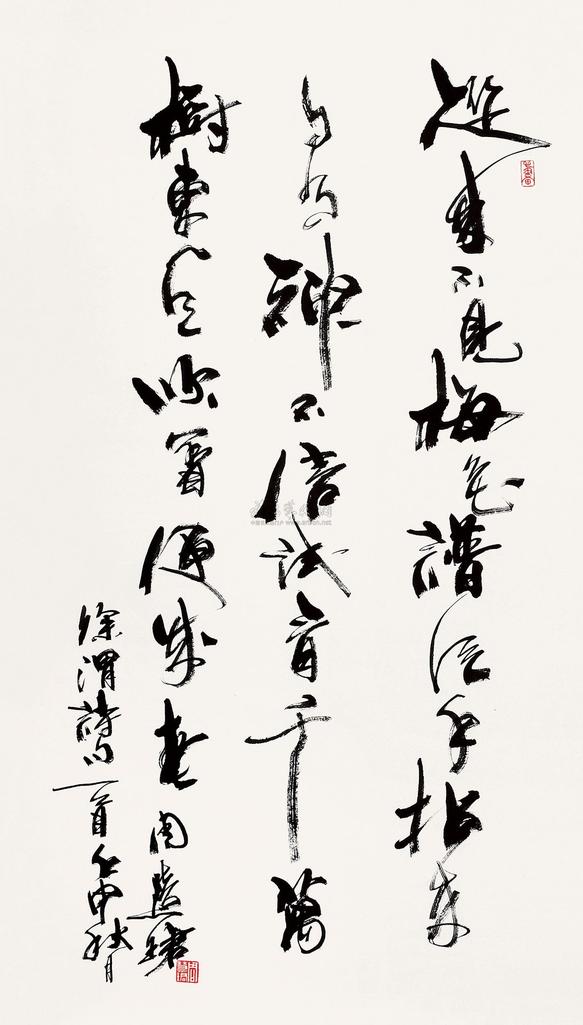 从来不见梅花譜信手拈来
自有神不信試看千萬
樹東風吹著便成春
徐渭詩一首壬申秋月
周慧珺